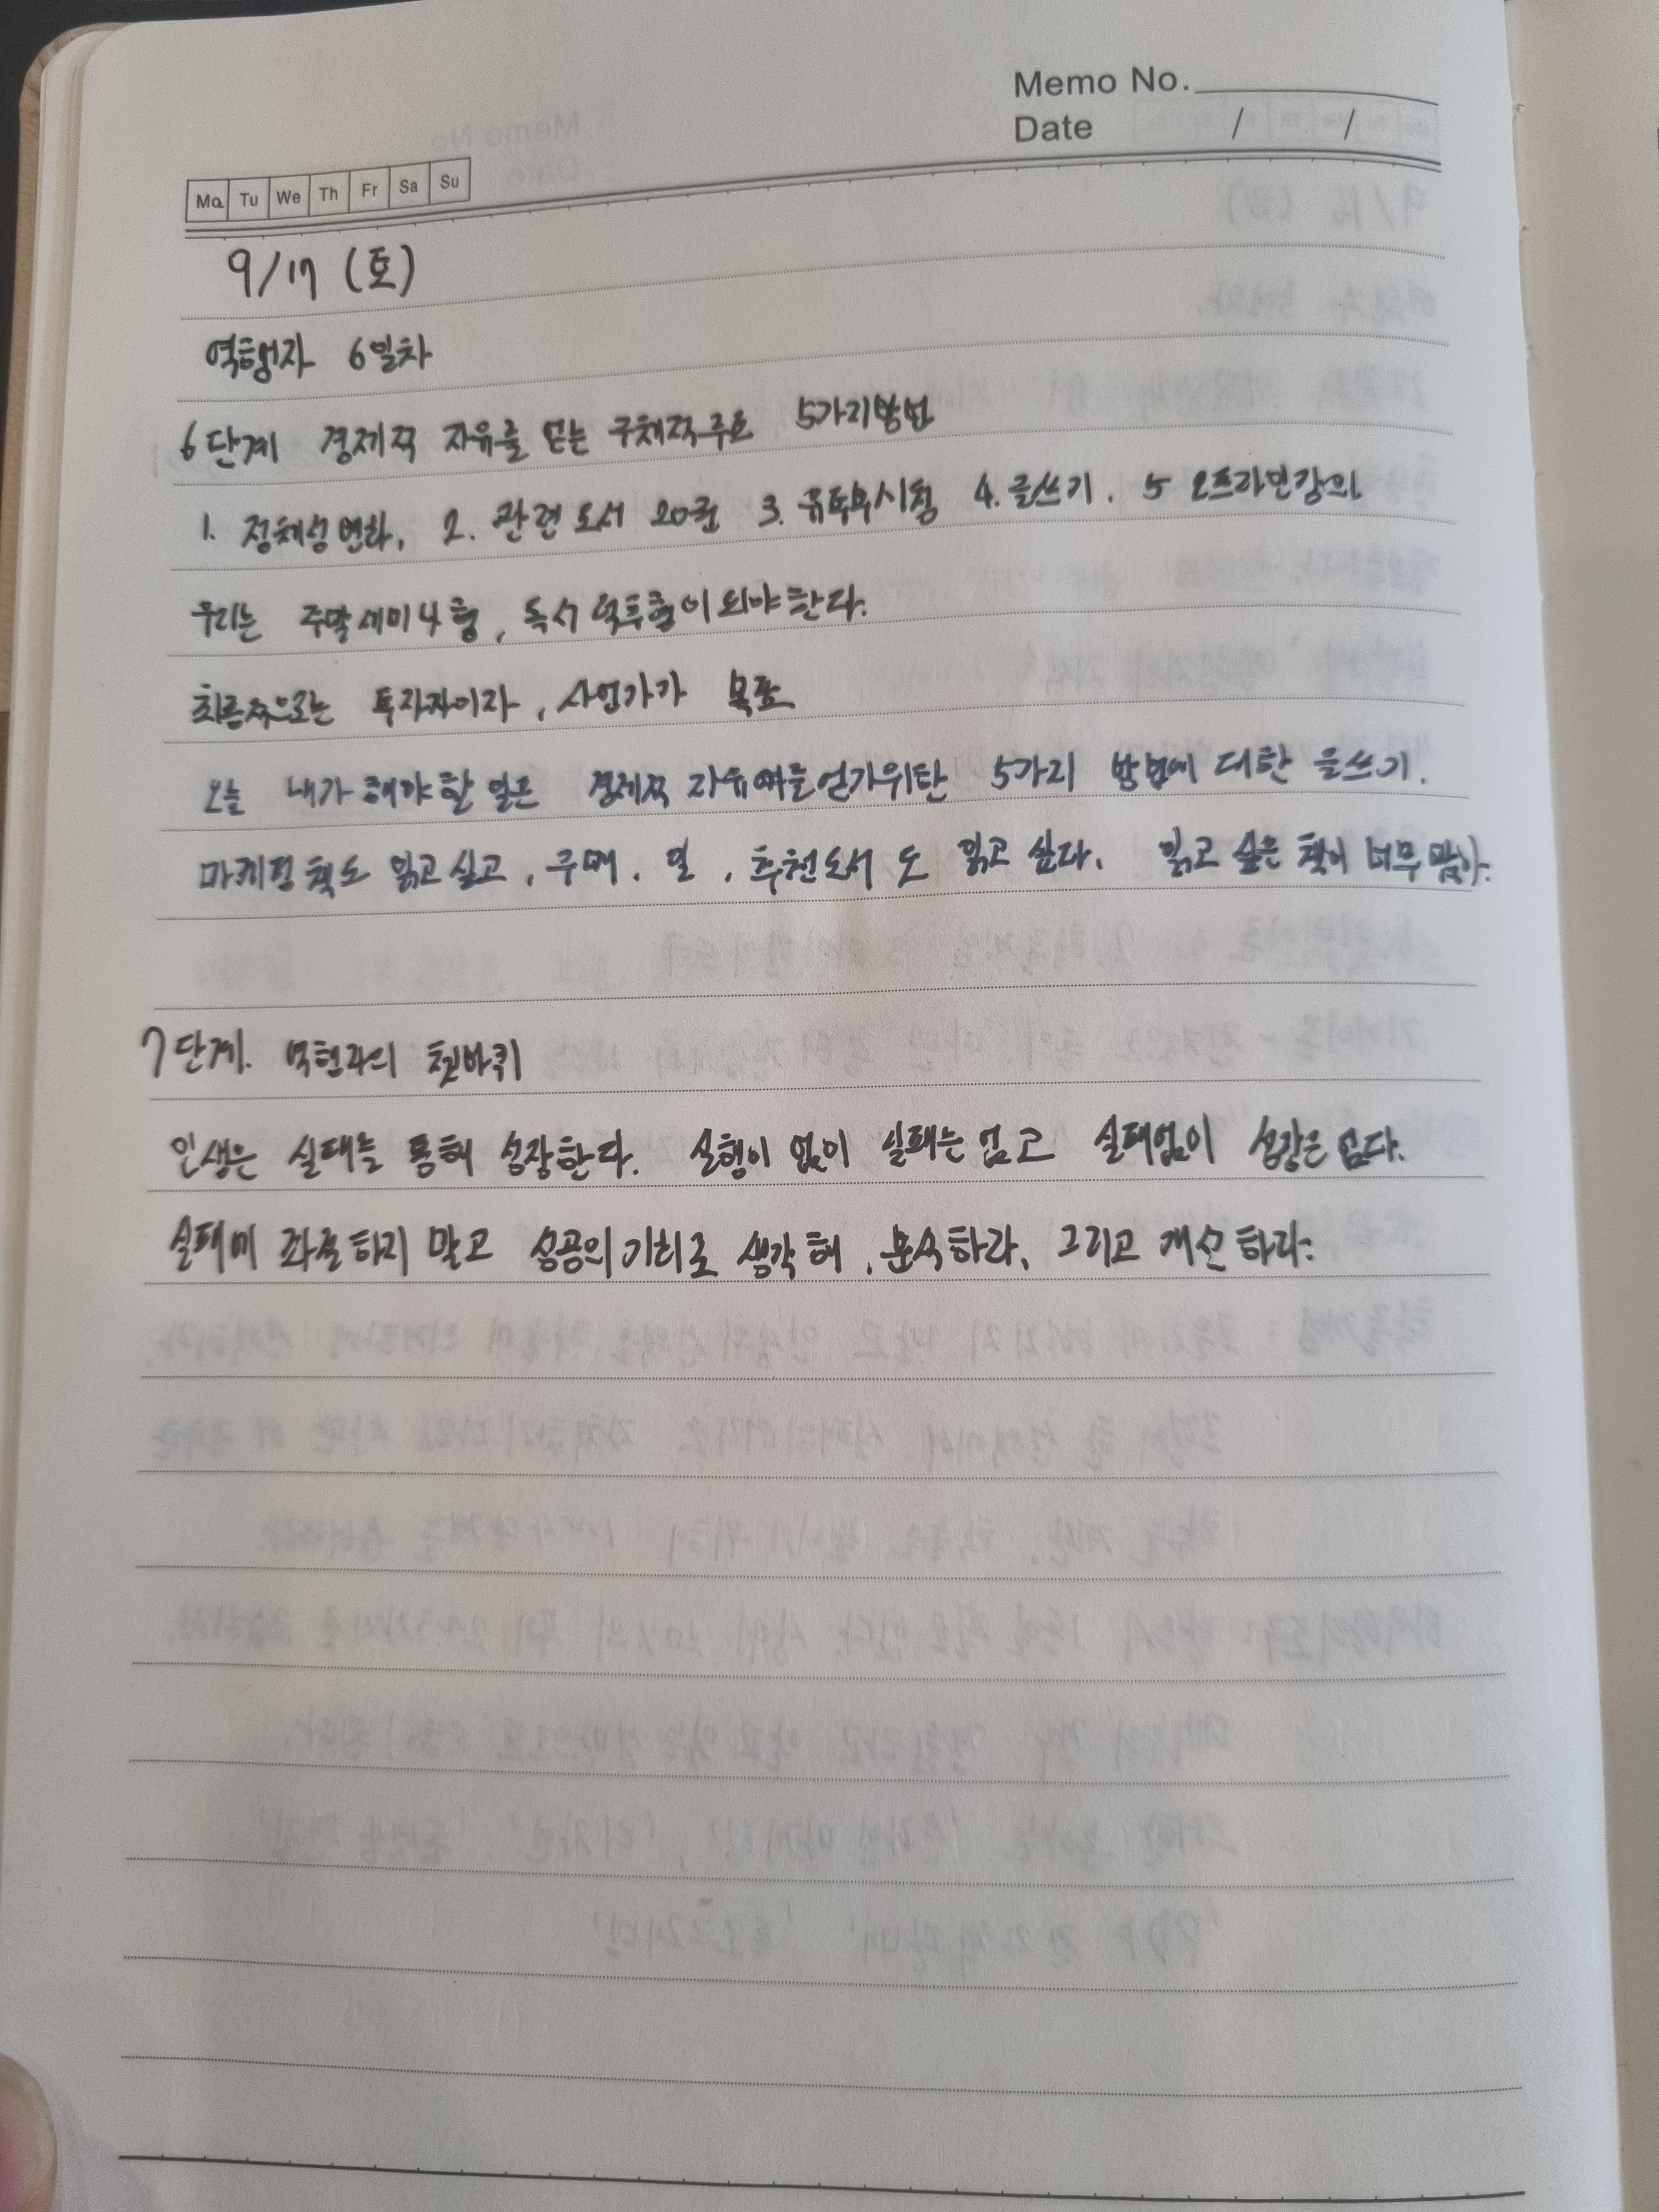 Memo No.
Date / /
Mo Tu We Th Fr Sa Su
9/17 (토)
역행자 6일차
6단계 경제적 자유를 얻는 구체적 루트 5가지방법
1. 정체성변화, 2. 관련도서 20권 3. 유튜브시청 4. 글쓰기. 5 오프라인강의
우리는 주말세미나형, 독서 덕후형이 되야한다.
최종적으로는 투자자이자, 사업가가 목표
오늘 내가 해야할 일은 경제적 자유 얻기위한 5가지 방법에 대한 글쓰기.
마케팅 책도 읽고싶고, 구매, 일, 추천도서도 읽고 싶다. 읽고 싶은 책이 너무 많아.
7단계. 역행자의 쳇바퀴
인생은 실패를 통해 성장한다. 실행이 없이 실패는 없고 실패없이 성장은 없다.
실패에 좌절하지 말고 성공의 기회로 생각해, 분석하라, 그리고 개선하라.